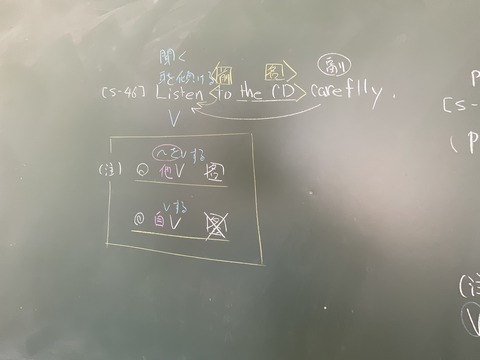 聞く
耳を傾ける 副 名 副
[S-46] Listen <to the CD> careflly.
V
〜をVする
(注) 他V 名
Vする
自V 名
P
[S-
(P
(注
V